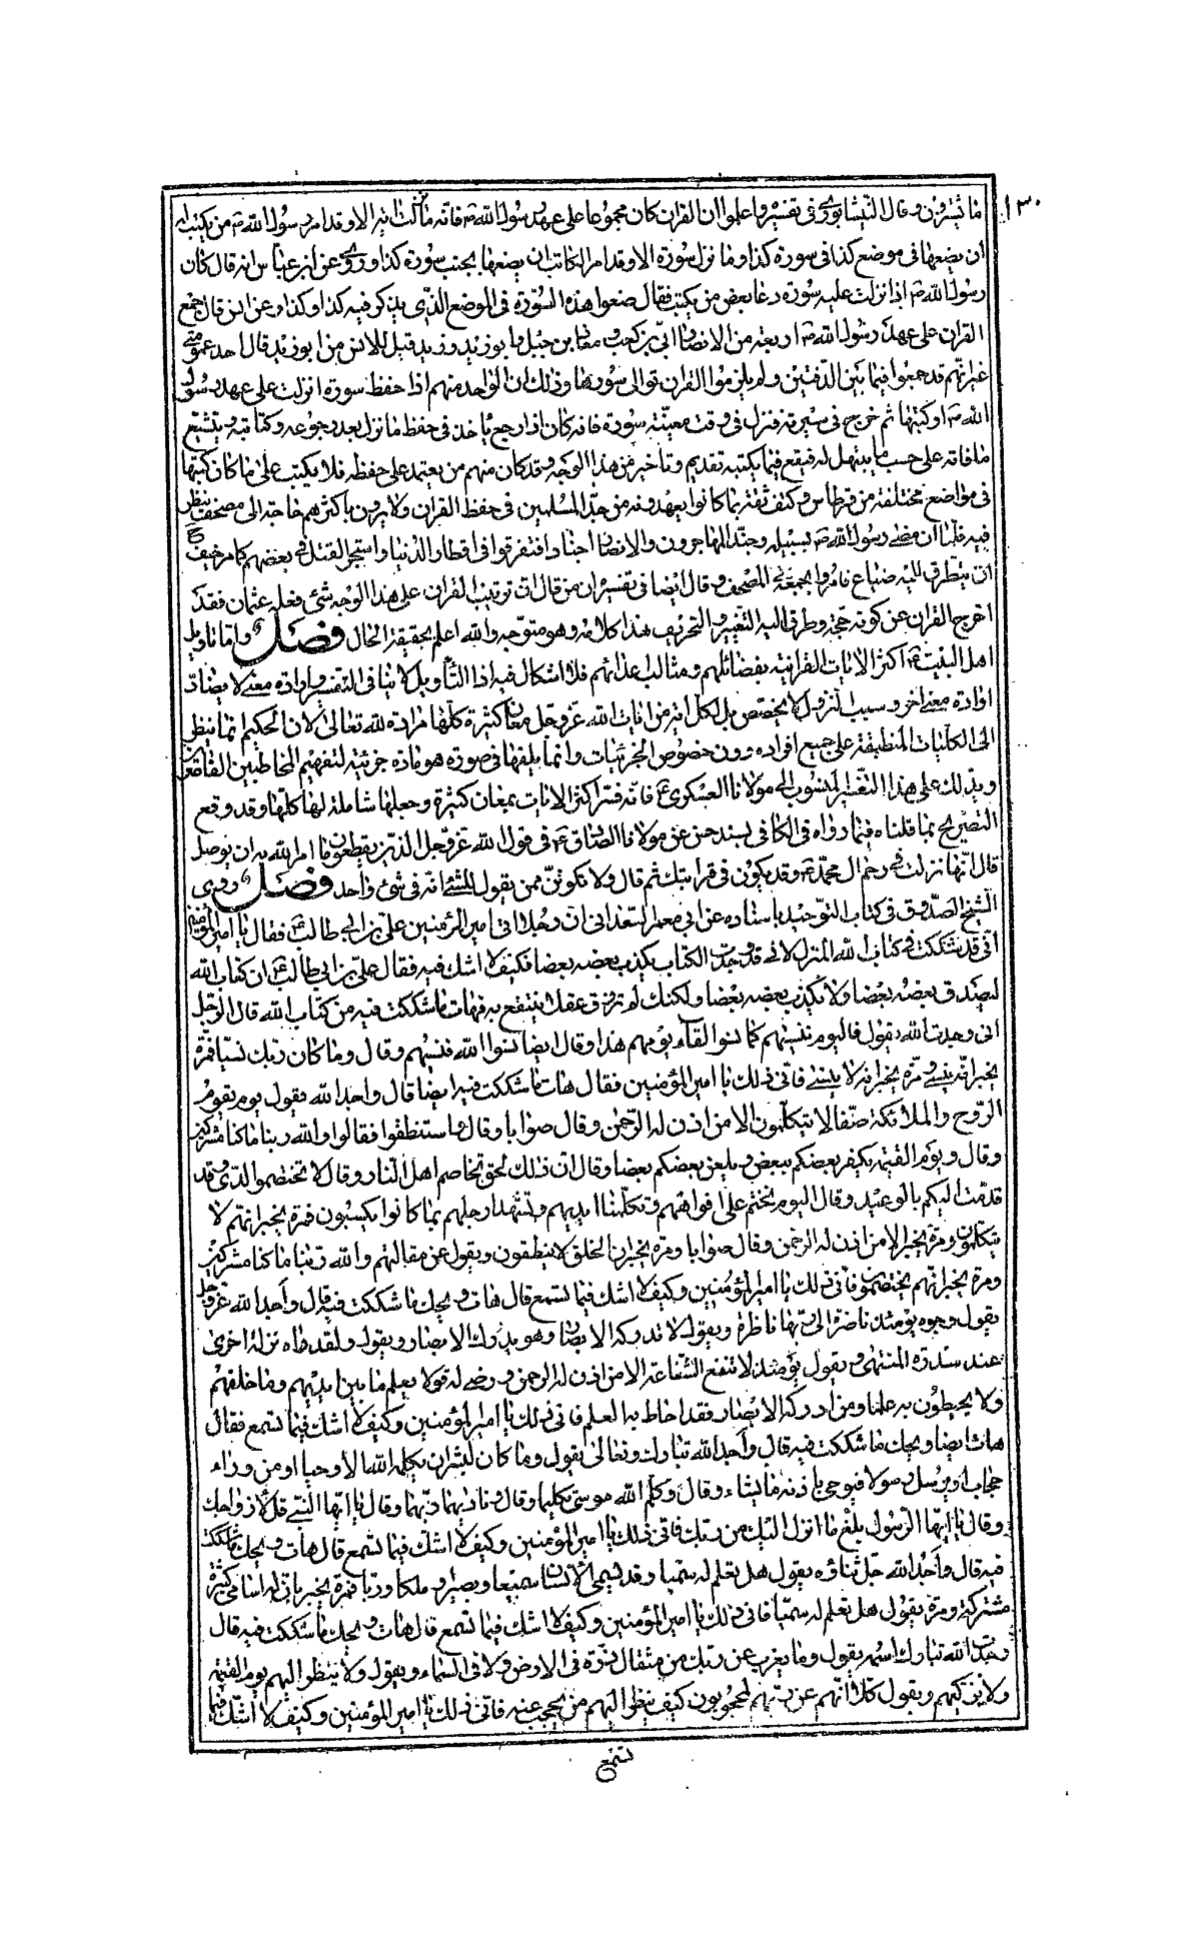 ١٣٠
ما تيسر من وقال النيشابوري في تفسيره واعلموا ان القران كان مجموعا على عهد رسول الله ص فانه ما نزلت اية الا وقد امر رسول الله ص من يكتب له
ان يضعها في موضع كذا في سورة كذا وما نزل سورة الا وقد امر الكاتب ان يضعها بجنب سورة كذا وروي عن ابن عباس انه قال كان
رسول الله ص اذا نزلت عليه سورة دعا بعض من يكتب فقال ضعوا هذه السورة في الموضع الذي يذكر فيه كذا وكذا وعن انس قال جمع
القران على عهد رسول الله ص اربعة من الانصار ابي بن كعب ومعاذ بن جبل وابو زيد وزيد قيل لانس من ابو زيد قال احد عمومتي
غير انهم قد جمعوا فيما بين الدفتين ولم يلزموا القران توالى سورها وذلك ان الواحد منهم اذا حفظ سورة انزلت على عهد رسول
الله ص او كتبها ثم خرج في سيرته فنزل في وقت معينة سورة فانه كان اذا رجع ياخذ في حفظ ما نزل بعد رجوعه وكتابته ويتتبع
ما فاته على حسب ما يتسهل له فيقع فيما يكتبه تقديم وتاخير من هذا الوجه وقد كان منهم من يعتمد على حفظه فلا يكتب على ما كان كتبها
في مواضع مختلفة من قرطاس وكتف ثقة بما كانوا يعهدونه من جد المسلمين في حفظ القران ولا يرون باكثرهم حاجة الى مصحف ينظر
فيه فلما ان مضى رسول الله ص بسبيله وجند المهاجرون والانصار اجنادا فتفرقوا في اقطار الدنيا واستحر القتل في بعضهم كما مر خيف ح
ان يتطرق اليه ضياع فامروا بجمعه في المصحف وقال ايضا في تفسيره ان من قال ان ترتيب القران على هذا الوجه شئ فعله عثمان فقد
اخرج القران عن كونه حجة وطرق اليه التغيير والتحريف هذا كلامه وهو متوجه والله اعلم بحقيقة الحال فصل واما تاويل
اهل البيت ع اكثر الايات القرانية بفضائلهم ومثالب عداتهم فلا اشكال فيه اذ التأويل لا ينافي التفسير وارادة معنى لا يضاد
ارادة معنى اخر وسبب النزول لا يخصص بل لكل اية من ايات الله عز وجل معان كثيرة كلها مرادة لله تعالى لان الحكيم انما ينظر
الى الكليات المنطبقة على جميع افراده دون خصوص الجزئيات وانما يلقها في صورة هو مادة جزئية لتفهيم المخاطبين القاصر
ويدلك على هذا التفسير المنسوب الى مولانا العسكري ع فانه فسر اكثر الايات بمعان كثيرة وجعلها شاملة لها كلها وقد وقع
التصريح بما قلناه فيما رواه في الكافي بسند حسن عن مولانا الصادق ع في قول الله عز وجل الذين يقطعون ما امر الله به ان يوصل
قال انها نزلت في رحم ال محمد ص وقد يكون في قرابتك ثم قال ولا تكونن ممن يقول للشئ انه في شئ واحد فصل وروى
الشيخ الصدوق في كتاب التوحيد باسناده عن ابي معمر السعداني ان رجلا اتى امير المؤمنين علي بن ابي طالب ع فقال يا امير المؤمنين
اني قد شككت في كتاب الله المنزل لاني قد وجدت الكتاب يكذب بعضه بعضا فكيف لا اشك فيه فقال علي بن ابي طالب ع ان كتاب الله
ليصدق بعضه بعضا ولا يكذب بعضه بعضا ولكنك لم ترزق عقلا ينتفع به فهات ما شككت فيه من كتاب الله قال الرجل
اني وجدت الله يقول فاليوم ننسيهم كما نسوا لقاء يومهم هذا وقال ايضا نسوا الله فنسيهم وقال وما كان ربك نسيا فمرة
يخبر انه ينسى ومرة يخبر انه لا ينسى فانى ذلك يا امير المؤمنين فقال هات ما شككت فيه ايضا قال واجد الله يقول يوم يقوم
الروح والملائكة صفا لا يتكلمون الا من اذن له الرحمن وقال صوابا وقال واستنطقوا فقالوا والله ربنا ما كنا مشركين
وقال ويوم القيمة يكفر بعضكم ببعض ويلعن بعضكم بعضا وقال ان ذلك لحق تخاصم اهل النار وقال لا تختصموا لدي وقد
قدمت اليكم بالوعيد وقال اليوم نختم على افواههم وتكلمنا ايديهم وتشهد ارجلهم بما كانوا يكسبون فمرة يخبر انهم لا
يتكلمون ومرة يخبر الا من اذن له الرحمن وقال صوابا ومرة يخبر ان الخلق لا ينطقون ويقول عن مقالتهم والله ربنا ما كنا مشركين
ومرة يخبر انهم يختصمون فانى ذلك يا امير المؤمنين وكيف لا اشك فيما تسمع قال هات ويحك ما شككت فيه قال واجد الله عز وجل
يقول وجوه يومئذ ناضرة الى ربها ناظرة ويقول لا تدركه الابصار وهو يدرك الابصار ويقول ولقد راه نزلة اخرى
عند سدرة المنتهى ويقول يومئذ لا تنفع الشفاعة الا من اذن له الرحمن ورضي له قولا يعلم ما بين ايديهم وما خلفهم
ولا يحيطون به علما ومن ادركه الابصار فقد احاط به العلم فانى ذلك يا امير المؤمنين وكيف لا اشك فيما تسمع فقال
هات ايضا ويحك ما شككت فيه قال واجد الله تبارك وتعالى يقول وما كان لبشر ان يكلمه الله الا وحيا او من وراء
حجاب او يرسل رسولا فيوحي باذنه ما يشاء وقال وكلم الله موسى تكليما وقال وناديهما ربهما وقال يا ايها النبي قل لازواجك
وقال يا ايها الرسول بلغ ما انزل اليك من ربك فانى ذلك يا امير المؤمنين وكيف لا اشك فيما تسمع قال هات ويحك ما شككت
فيه قال واجد الله جل ثناؤه يقول هل تعلم له سميا وقد يسمى الانسان سميعا وبصيرا وملكا وربا فمرة يخبر بان له اسامي كثيرة
مشتركة ومرة يقول هل تعلم له سميا فانى ذلك يا امير المؤمنين وكيف لا اشك فيما تسمع قال هات ويحك ما شككت فيه قال
وجدت الله تبارك اسمه يقول وما يعزب عن ربك من مثقال ذرة في الارض ولا في السماء ويقول ولا ينظر اليهم يوم القيمة
ولا يزكيهم ويقول كلا انهم عن ربهم لمحجوبون كيف ينظر اليهم من يحجب عنه فانى ذلك يا امير المؤمنين وكيف لا اشك فيما
تسمع